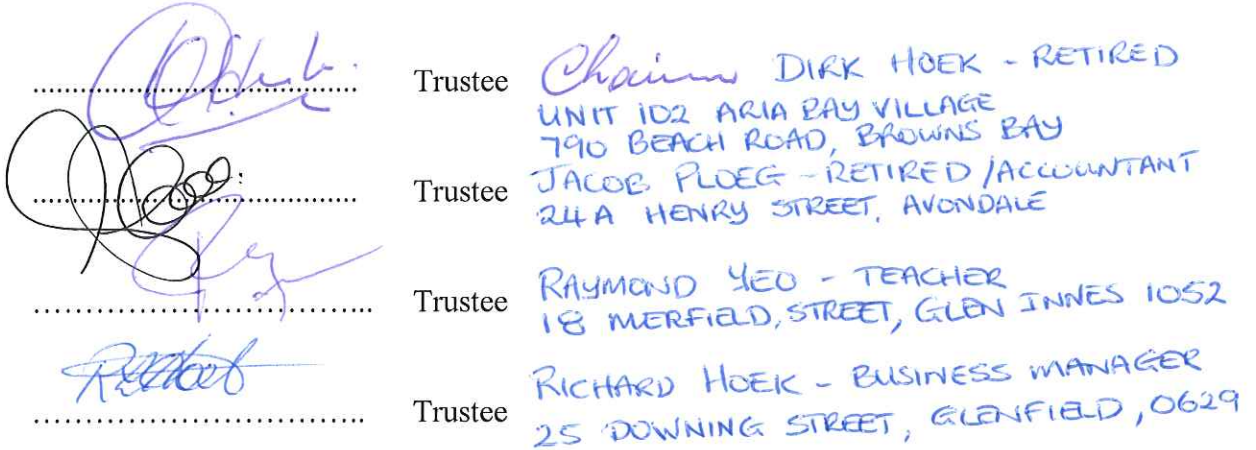 Trustee Chairman DIRK HOEK - RETIRED
UNIT 102 ARIA BAY VILLAGE
790 BEACH ROAD, BROWNS BAY
Trustee JACOB PLOEG - RETIRED / ACCOUNTANT
24A HENRY STREET, AVONDALE
Trustee RAYMOND YEO - TEACHER
18 MERFIELD, STREET, GLEN INNES 1052
Trustee RICHARD HOEK - BUSINESS MANAGER
25 DOWNING STREET, GLENFIELD, 0629